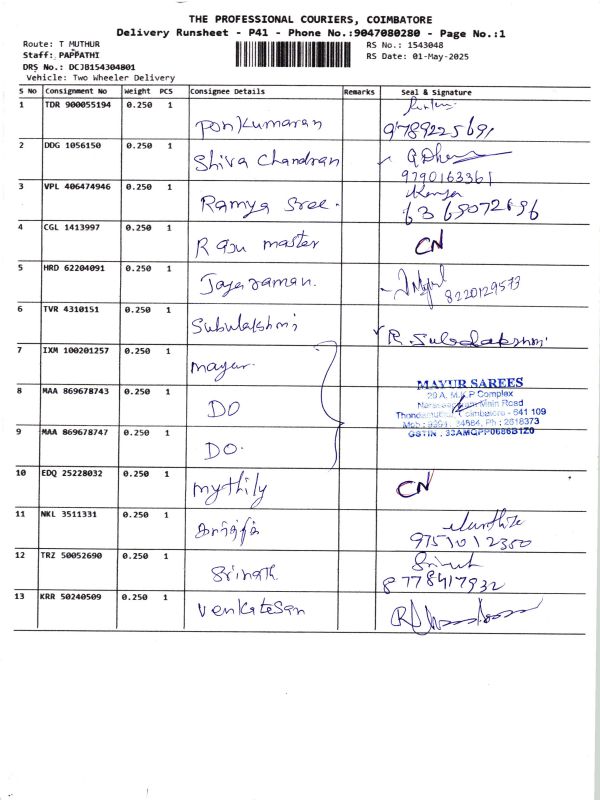 THE PROFESSIONAL COURIERS, COIMBATORE
Delivery Runsheet - P41 - Phone No.:9047080280 - Page No.:1
Route: T MUTHUR RS No.: 1543048
Staff: PAPPATHI RS Date: 01-May-2025
DRS No.: DCJB154304801
Vehicle: Two Wheeler Delivery
S No Consignment No Weight PCS Consignee Details Remarks Seal & Signature
1 TDR 900055194 0.250 1
Ponkumaran 9789225691
2 DDG 1056150 0.250 1 Shiva Chandran
9790163361
3 VPL 406474946 0.250 1
Ramya Sree. 6369072696
4 CGL 1413997 0.250 1 Raju master CN
5 HRD 62204091 0.250 1 Jayaraman. 8220129573
6 TVR 4310151 0.250 1 Subulakshmi R. Subulakshmi
7 IXM 100201257 0.250 1 mayur.
MAYUR SAREES
8 MAA 869678743 0.250 1 DO
29 A, M.K.P Complex
Main Road
641 109
34884, Ph : 2618373
9 MAA 869678747 0.250 1 DO.
GSTIN : 33AMQPP0686B1Z0
10 EDQ 25228032 0.250 1 mythily CN
11 NKL 3511331 0.250 1
9751012350
12 TRZ 50052690 0.250 1 Srinath
8778417932
13 KRR 50240509 0.250 1 Venkatesan